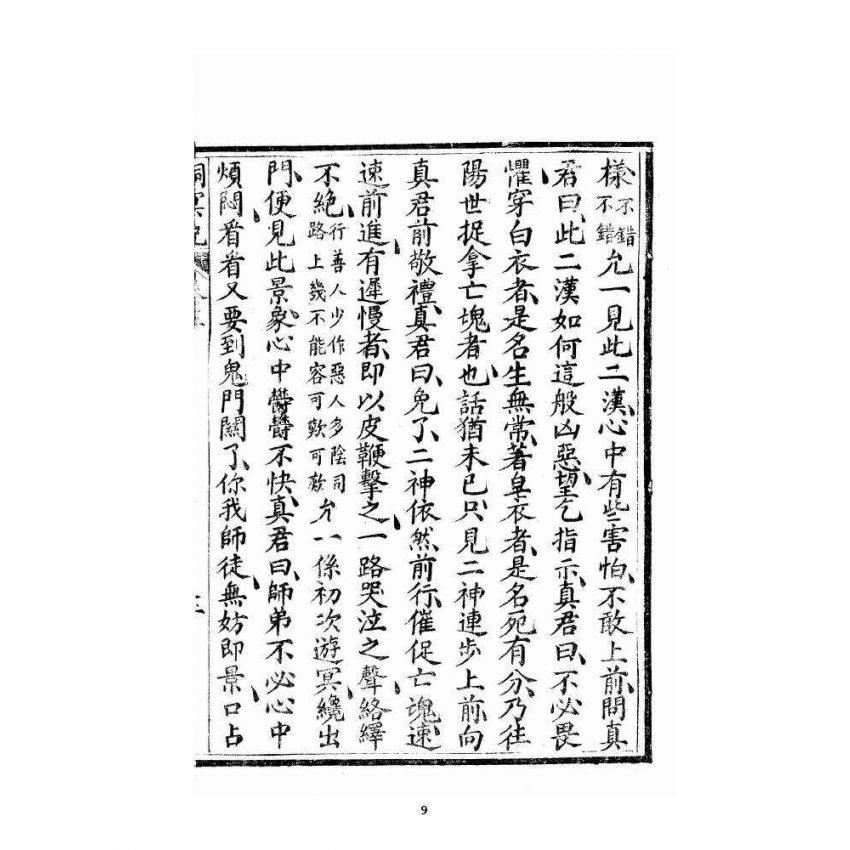 樣不錯不錯允一見此二漢心中有些害怕不敢上前問真
君曰此二漢如何這般凶惡望乞指示真君曰不必畏
懼穿白衣者是名生無常著皁衣者是名死有分乃往
陽世捉拿亡魂者也話猶未已只見二神連步上前向
真君前敬禮真君曰免了二神依然前行催促亡魂速
速前進有遲慢者即以皮鞭擊之一路哭泣之聲絡繹
不絕行善人少作惡人多陰司路上幾不能容可歎可歎允一係初次遊冥纔出
門便見此景象心中鬱鬱不快真君曰師弟不必心中
煩悶看看又要到鬼門關了你我師徒無妨即景口占
洞冥記
9